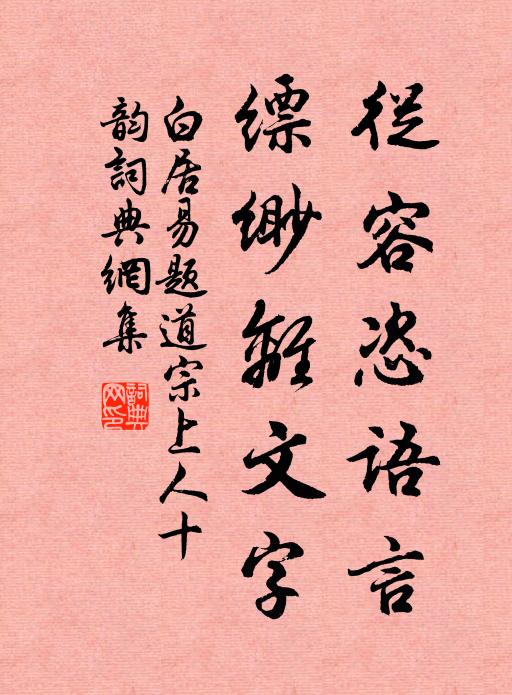 從容恣語言
縹緲離文字
白居易題道宗上人十
韵詞典網集
詞典網印